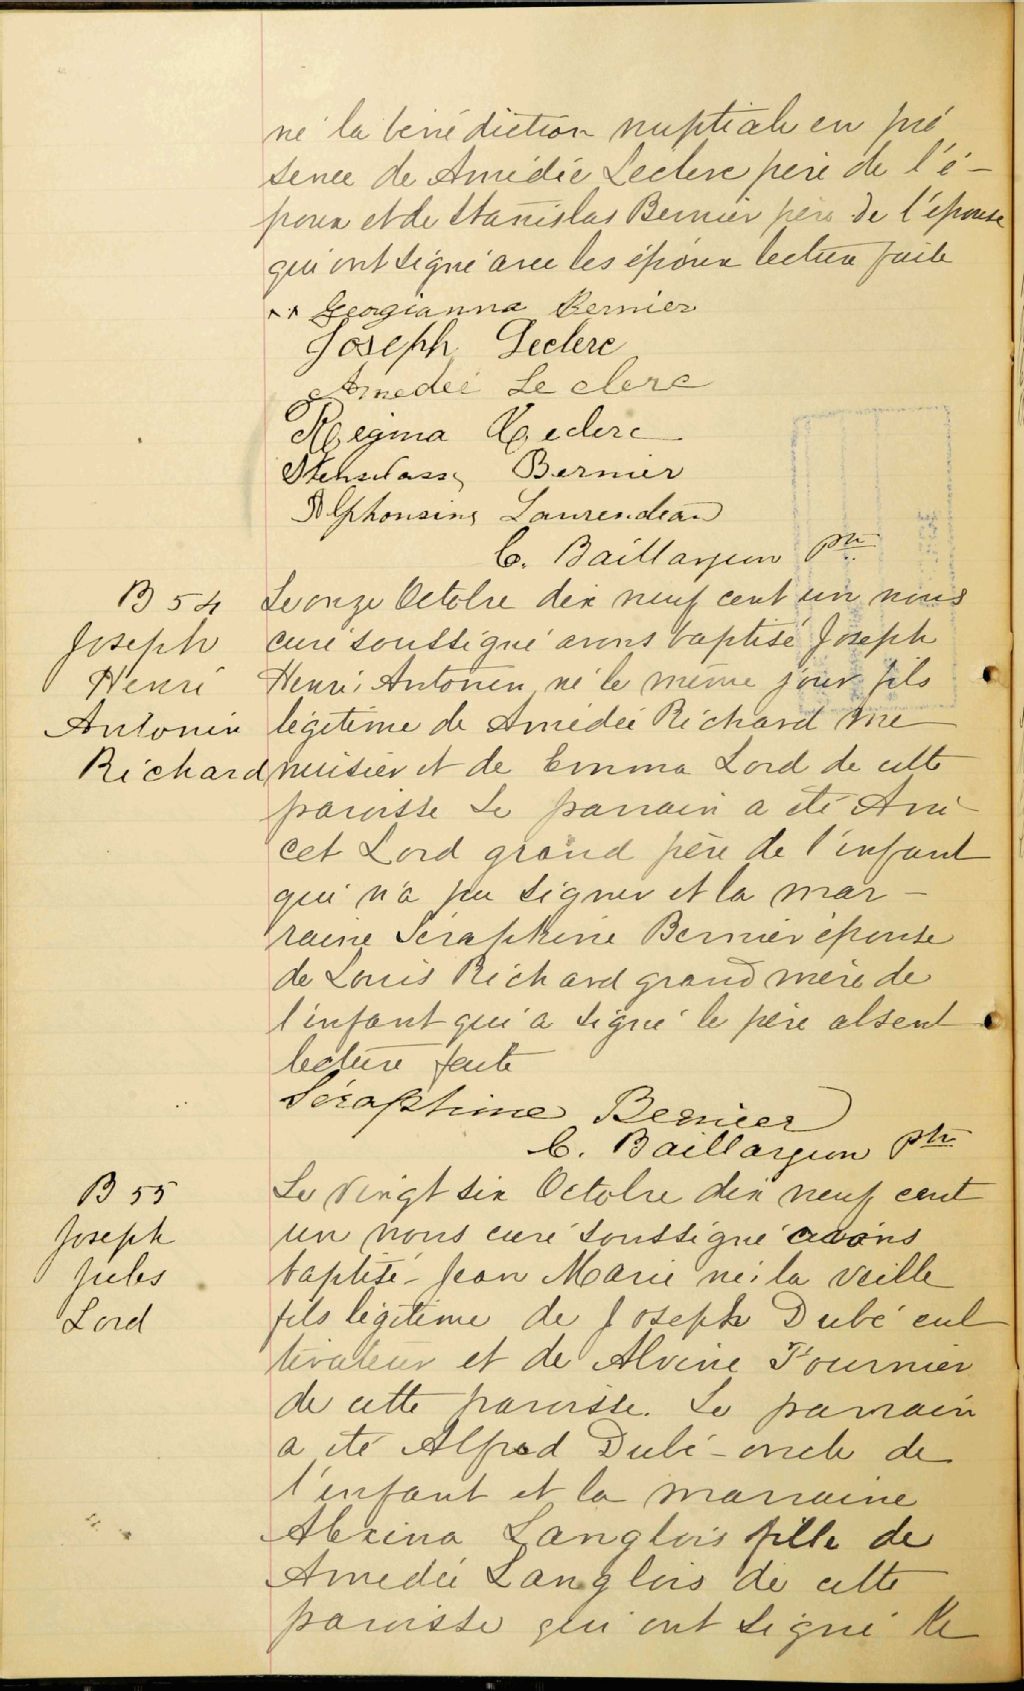 né la bénédiction nuptiale en pré
sence de Amédée Leclerc père de l'é-
poux et de Stanislas Bernier père de l'épouse
qui ont signé avec les époux lecture faite
Georgianna Bernier
Joseph Leclerc
Amedée Leclerc
Régina Leclerc
Stanislass Bernier
Alphonsine Laurendeau
C. Baillargeon ptre
B 54
Joseph
Henri
Antonin
Richard
Le onze Octobre dix neuf cent un nous
curé soussigné avons baptisé Joseph
Henri Antonin né le même jour fils
légitime de Amédée Richard me
nuisier et de Emma Lord de cette
paroisse Le parrain a été Ani
cet Lord grand père de l'enfant
qui n'a pu signer et la mar-
raine Séraphine Bernier épouse
de Louis Richard grand mère de
l'enfant qui a signé le père absent
lecture faite
Séraphine Bernier
C. Baillargeon ptre
B 55
Joseph
Jules
Lord
Le vingt six Octobre dix neuf cent
un nous curé soussigné avons
baptisé Jean Marie né la veille
fils légitime de Joseph Dubé cul
tivateur et de Alvine Fournier
de cette paroisse. Le parrain
a été Alfred Dubé oncle de
l'enfant et la marraine
Alexina Langlois fille de
Amedée Langlois de cette
paroisse qui ont signé le